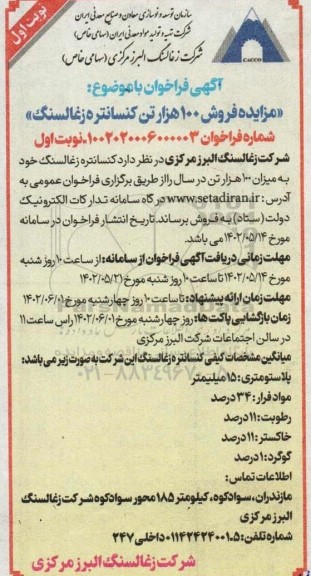 نوبت اول
سازمان توسعه و نوسازی معادن و صنایع معدنی ایران
شرکت تهیه و تولید مواد معدنی ایران (سهامی خاص)
شرکت زغالسنگ البرز مرکزی (سهامی خاص)
CACCO
آگهی فراخوان با موضوع:
«مزایده فروش ۱۰۰ هزار تن کنسانتره زغالسنگ»
شماره فراخوان ۱۰۰۲۰۲۰۰۰۶۰۰۰۰۰۳-نوبت اول
شرکت زغالسنگ البرز مرکزی در نظر دارد کنسانتره زغالسنگ خود
به میزان ۱۰۰ هزار تن در سال را از طریق برگزاری فراخوان عمومی به
آدرس: www.setadiran.ir در گاه سامانه تدارکات الکترونیک
دولت (ستاد) به فروش برساند. تاریخ انتشار فراخوان در سامانه
مورخ ۱۴۰۲/۰۵/۱۴ می باشد.
مهلت زمانی دریافت آگهی فراخوان از سامانه: از ساعت ۱۰ روز شنبه
مورخ ۱۴۰۲/۰۵/۱۴ تا ساعت ۱۰ روز شنبه مورخ ۱۴۰۲/۰۵/۲۱
مهلت زمان ارائه پیشنهاد: تا ساعت ۱۰ روز چهارشنبه مورخ ۱۴۰۲/۰۶/۰۱
زمان بازگشایی پاکت ها: روز چهارشنبه مورخ ۱۴۰۲/۰۶/۰۱ راس ساعت ۱۱
در سالن اجتماعات شرکت البرز مرکزی
میانگین مشخصات کیفی کنسانتره زغالسنگ این شرکت به صورت زیر می باشد:
پلاستومتری: ۱۵ میلیمتر
مواد فرار: ۳۴ درصد
رطوبت: ۱۱ درصد
خاکستر: ۱۱ درصد
گوگرد: ۱ درصد
اطلاعات تماس:
مازندران، سوادکوه، کیلومتر ۱۸۵ محور سوادکوه شرکت زغالسنگ
البرز مرکزی
شماره تلفن: ۵-۰۱۱۴۲۴۲۴۰۰۱ داخلی ۲۴۷
شرکت زغالسنگ البرز مرکزی
۰۲۱-۸۸۳۴۹۶۷۰